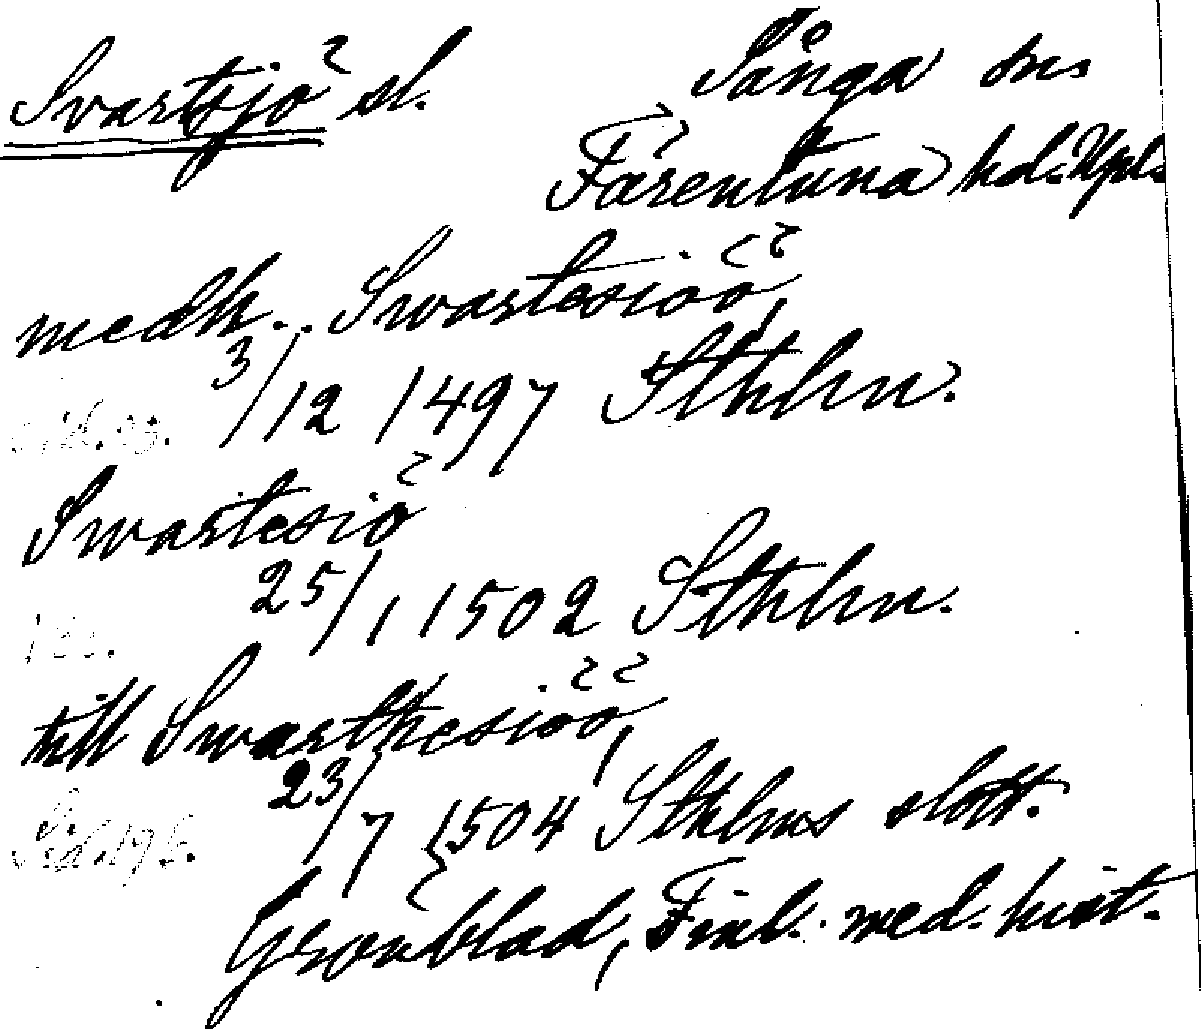 Svartsjö sl. Sånga sn.
Färentuna hd. Upl.
medh .. Swartesiöö,
3/12 1497 Sthlm.
Swartesiö
25/1 1502 Sthlm.
till Swarthesiöö,
23/7 1504 Sthlms slott.
Grönblad, Finl. med. hist.